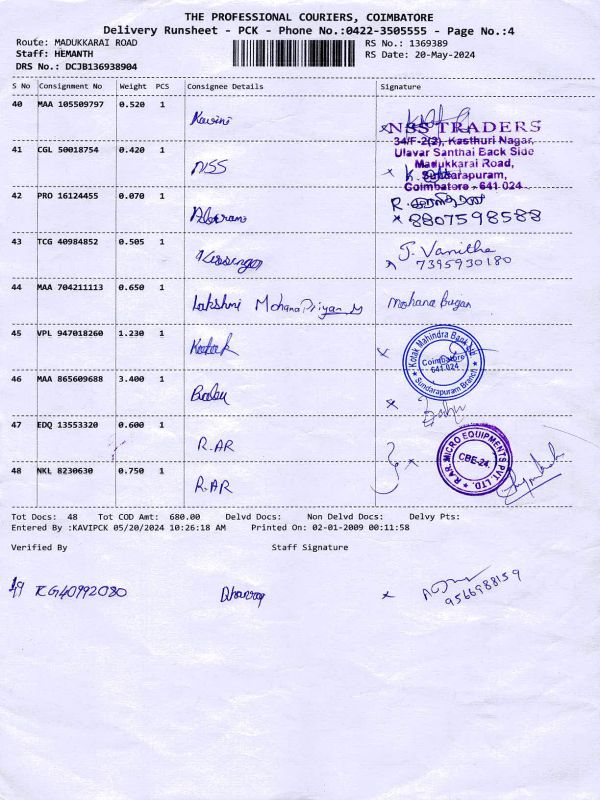 THE PROFESSIONAL COURIERS, COIMBATORE
Delivery Runsheet - PCK - Phone No.:0422-3505555 - Page No.:4
Route: MADUKKARAI ROAD
RS No.: 1369389
Staff: HEMANTH
RS Date: 20-May-2024
DRS No.: DCJB136938904
S No Consignment No Weight PCS Consignee Details Signature
40 MAA 105509797 0.520 1 Kavini
NSS TRADERS
34/F-2(2), Kasthuri Nagar,
Ulavar Santhai Back Side
Madukkarai Road,
Sundarapuram,
Coimbatore - 641 024
41 CGL 50018754 0.420 1 NSS
42 PRO 16124455 0.070 1
8807598588
43 TCG 40984852 0.505 1 J. Vanitha
7395930180
44 MAA 704211113 0.650 1 Lakshmi Mohana Priyan
45 VPL 947018260 1.230 1 Kotak
Kotak Mahindra Bank Ltd
Coimbatore
641 024
Sundarapuram Branch
46 MAA 865609688 3.400 1
47 EDQ 13553320 0.600 1 R.AR
R.AR. MICRO EQUIPMENTS PVT. LTD.
CBE-24.
48 NKL 8230630 0.750 1 R.AR
Tot Docs: 48 Tot COD Amt: 680.00 Delvd Docs: Non Delvd Docs: Delvy Pts:
Entered By :KAVIPCK 05/20/2024 10:26:18 AM Printed On: 02-01-2009 00:11:58
Verified By Staff Signature
49 TCG40992080
9566988159